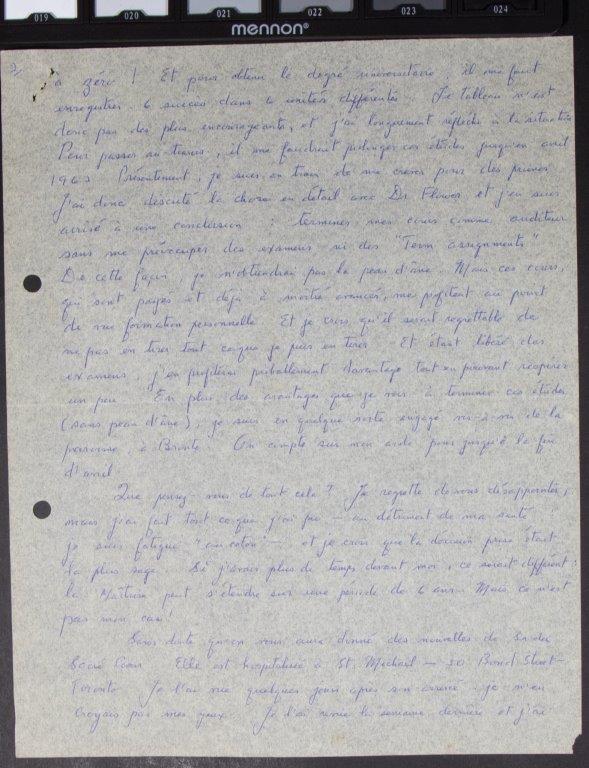 019 020 021 022 023 024
mennon®
2/
à zéro ! Et pour obtenir le degré universitaire, il me faut
enregistrer 6 succès dans 6 unités différentes. Le tableau n'est
donc pas des plus encourageants, et j'ai longuement réfléchi à la situation.
Pour passer au travers, il me faudrait prolonger ces études jusqu'en avril
1963. Présentement, je suis en train de me crever pour des prunes.
J'ai donc discuté la chose en détail avec Dr. Flower et j'en suis
arrivé à une conclusion : terminer mes cours comme auditeur
sans me préoccuper des examens ni des "Term assignments".
De cette façon, je n'obtiendrai pas la peau d'âne. Mais ces cours,
qui sont payés et déjà à moitié avancés, me profitent au point
de vue formation personnelle. Et je crois qu'il serait regrettable de
ne pas en tirer tout ce que je puis en tirer. Et étant libéré des
examens, j'en profiterai probablement davantage tout en pouvant récupérer
un peu. En plus des avantages que je vois à terminer ces études
(sans peau d'âne), je suis en quelque sorte engagé vis-à-vis de la
paroisse, à Bronte. On compte sur mon aide pour jusqu'à la fin
d'avril.
Que pensez-vous de tout cela ? Je regrette de vous désappointer,
mais j'ai fait tout ce que j'ai pu — au détriment de ma santé :
je suis fatigué "au coton" — et je crois que la décision prise était
la plus sage. Si j'avais plus de temps devant moi, ce serait différent :
la Maîtrise peut s'étendre sur une période de 6 ans. Mais ce n'est
pas mon cas !
Sans doute qu'on vous aura donné des nouvelles de
Sacré Coeur. Elle est hospitalisée à St. Michael — 30 Bond Street —
Toronto. Je l'ai vue quelques jours après son arrivée : je n'en
croyais pas mes yeux. Je l'ai revue la semaine dernière et j'ai